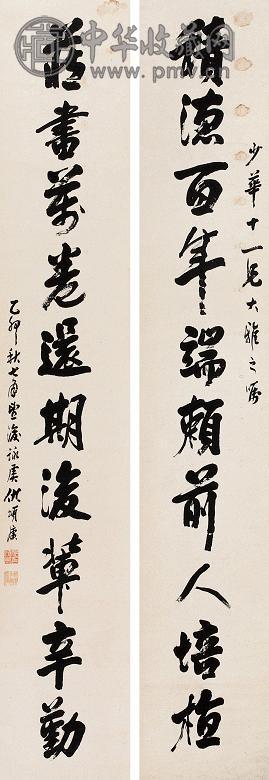 中华收藏网
www.pmv.cn
少華十一兄大雅之屬
積德百年端賴前人培植
藏書萬卷還期後輩辛勤
乙卯秋七月望後詠虞仇